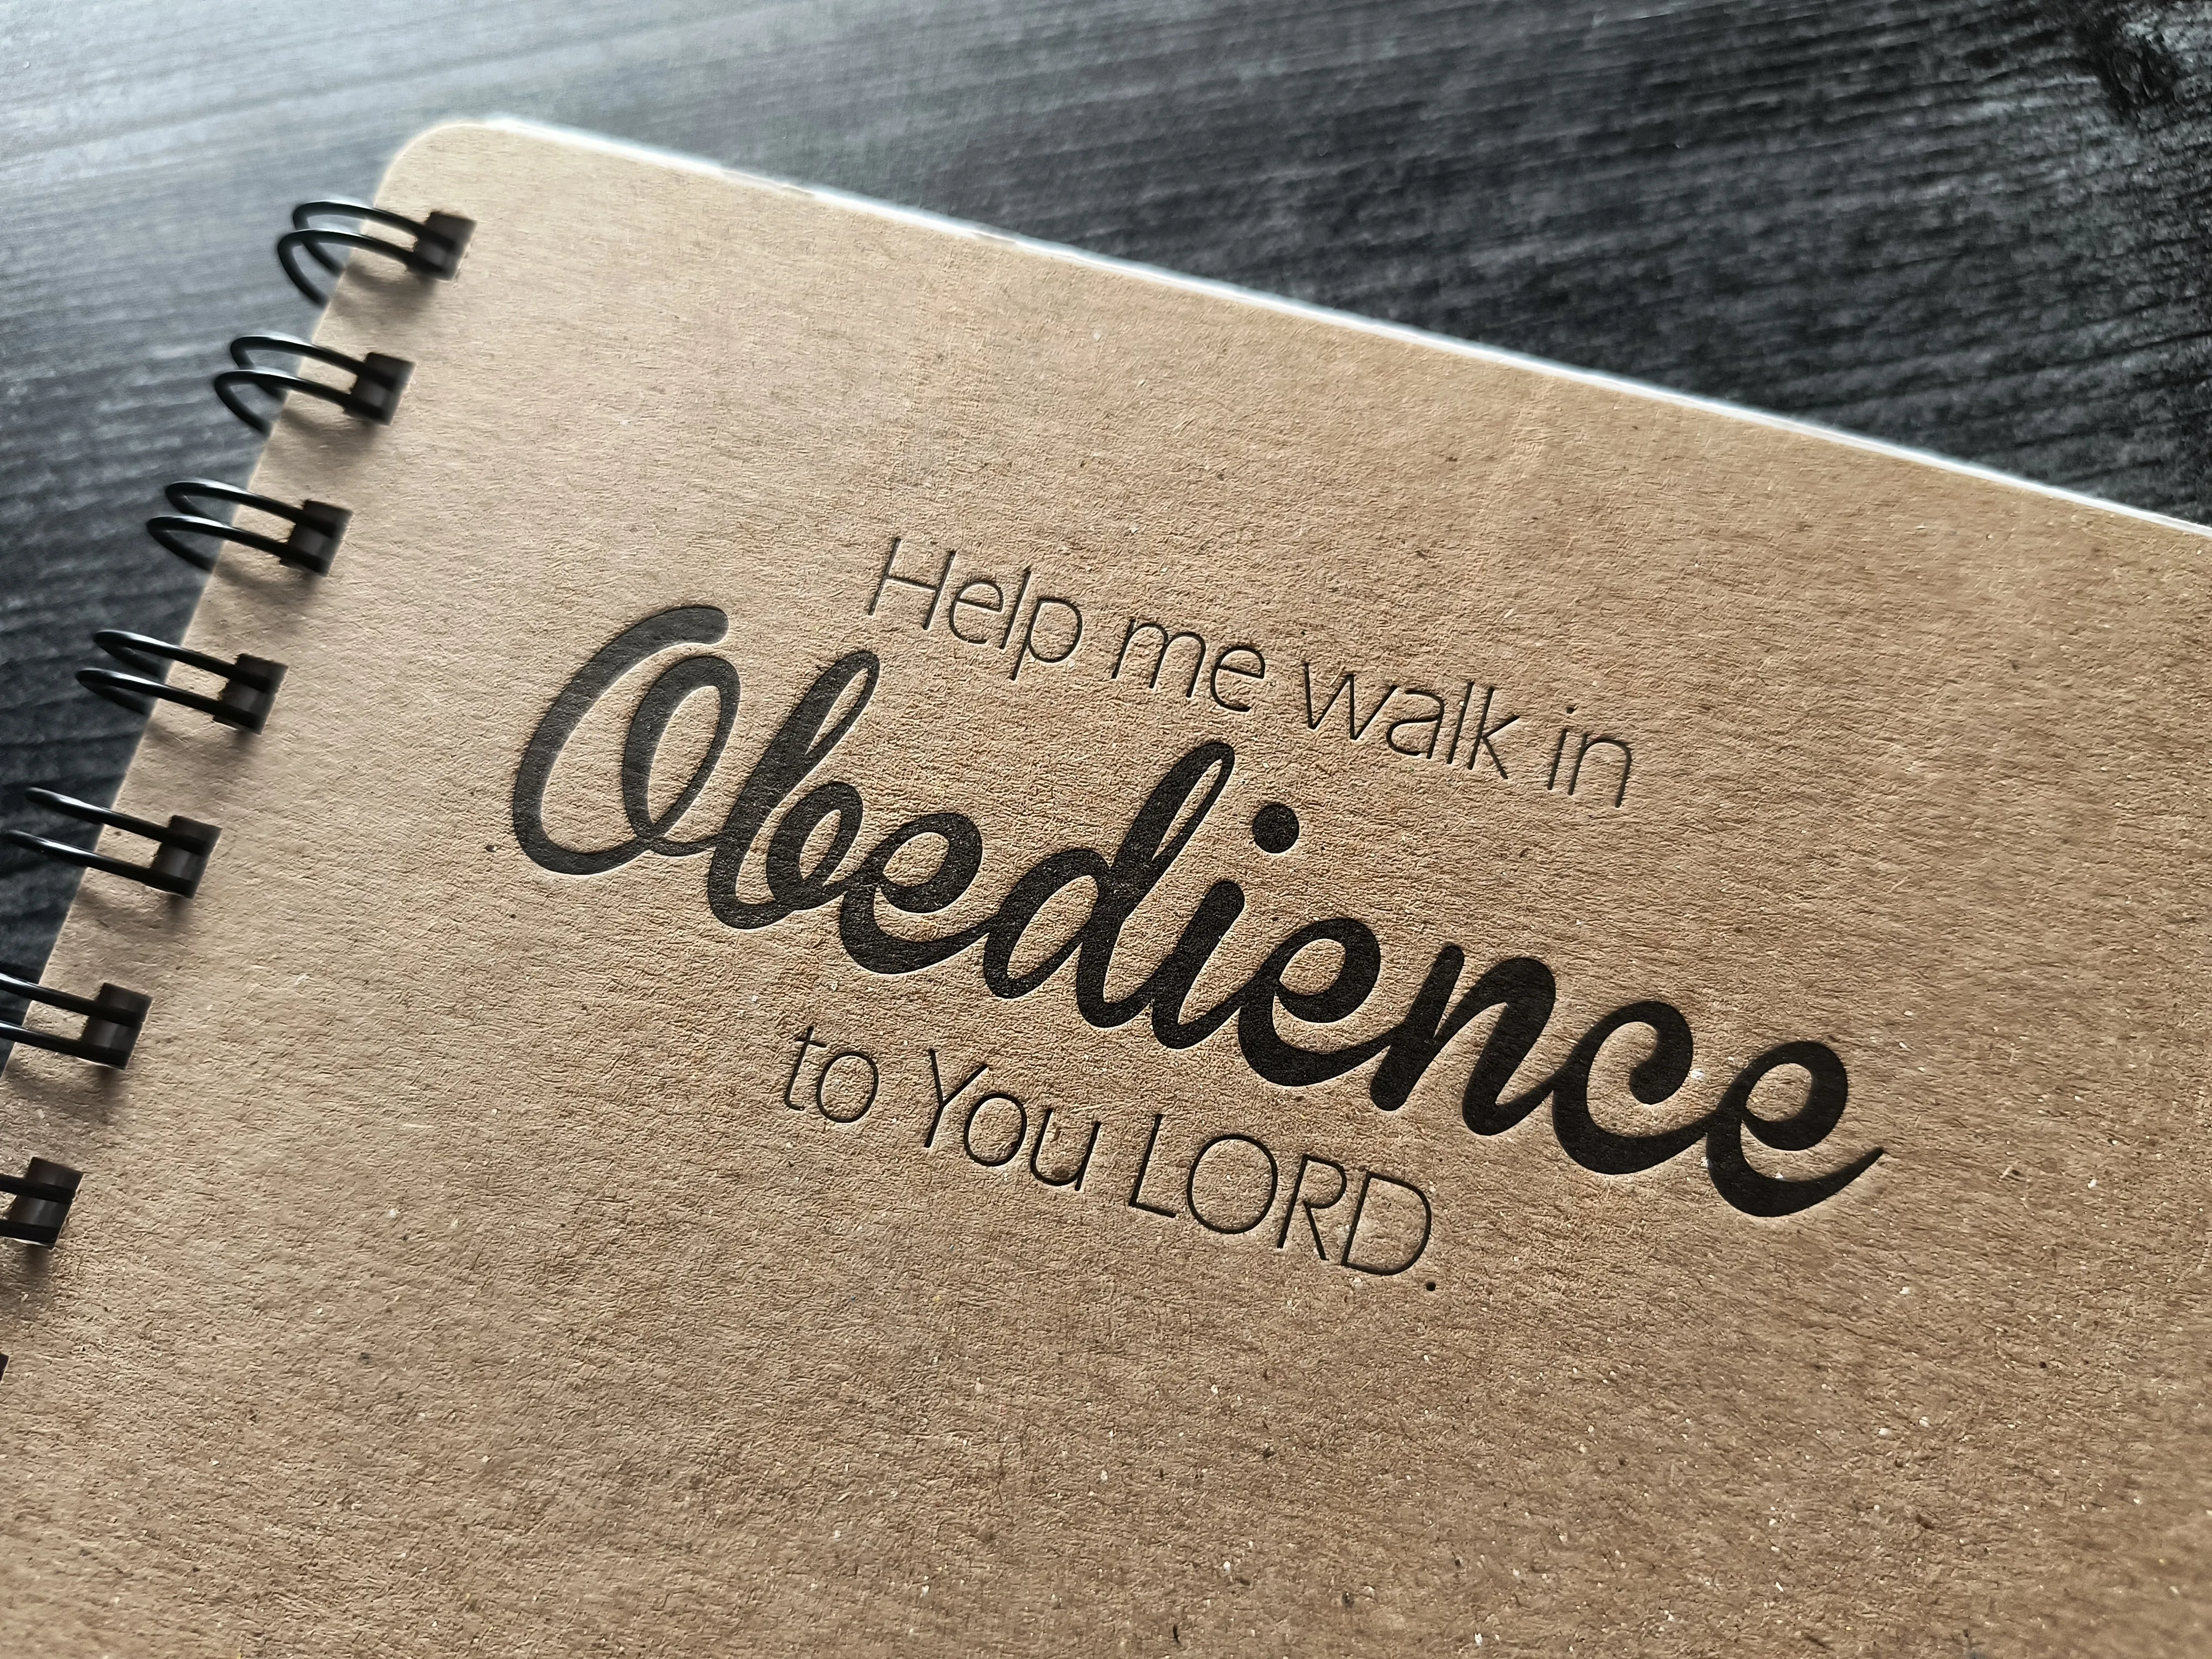 Help me walk in
Obedience
to You LORD.